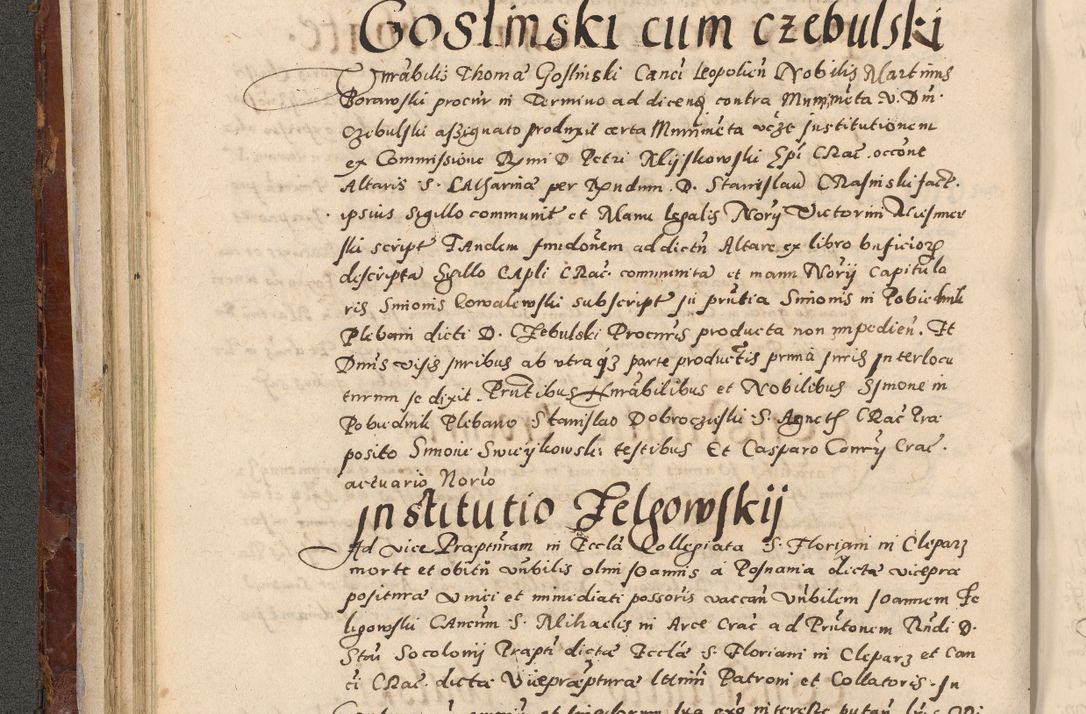 Goslinski cum Czebulski
Vnrabilis Thomæ Goslinski Canci Leopolien Nobilis Martinus
Borawski procur in Termino ad dicend contra Munimenta V. Dni
Czebulski assignato produxit certa Munimenta vczt Institutionem
ex Commissione Rxmi D Petri Myskowski Epi Crac. occone
Altaris S. Catharinæ per Rxndum D. Stanislaum Crasinski fact.
ipsius Sigillo communit et Manu legalis Norij Victorini
ski script Tandem fundonem ad dictu Altare ex libro bnficior
descripta Sigillo Capli Crac. communita et manu Norij Capitula
ris Simonis Kowalewski subscript in pruntia Simonis in Pobiednik
Plebani dicti D. Czebulski Procuris producta non impedien. Et
Dnus visis Juribus ab utraqz parte productis prima Juris Interlocu
turum se dixit. Pruntibus Hnrabilibus et Nobilibus Simone in
Pobiednik Plebano Stanislao Dobroczieski S. Agnetis Crac Præ
posito Simone Swieykowski testibus Et Casparo Conry Crac.
actuario Norio
Institutio Zelgowskij
Ad Vice Præpturam in Eccla Collegiata S. Floriani in Cleparz
morte et obitu Vnbilis olim Joannis a Posnania dictæ vicepræ
posituræ vnici et immediati possoris vaccan Vnbilem Joannem Ze
ligowski Cancum S. Michaelis in Arce Crac ad Pruntonem Rndi D.
Stan Socolonij Præpti dictæ Ecclæ S. Floriani in Cleparz et Can
ci Crac. dictæ Vicepræpturæ ltimi Patroni et Collatoris. In